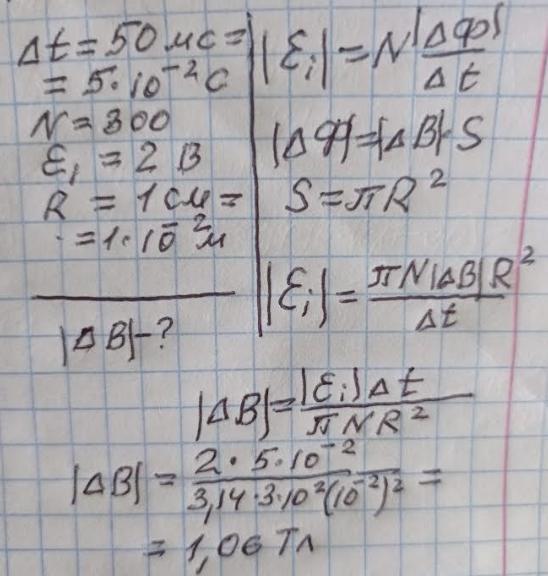 Δt = 50 мс =
= 5·10⁻² с
N = 300
Ɛᵢ = 2 В
R = 1 см =
= 1·10⁻² м
|ΔB| - ?
|Ɛᵢ| = N |ΔΦ| / Δt
|ΔΦ| = |ΔB|·S
S = πR²
|Ɛᵢ| = πN|ΔB|R² / Δt
|ΔB| = |Ɛᵢ|Δt / πNR²
|ΔB| = 2·5·10⁻² / 3,14·3·10²(10⁻²)² =
= 1,06 Тл